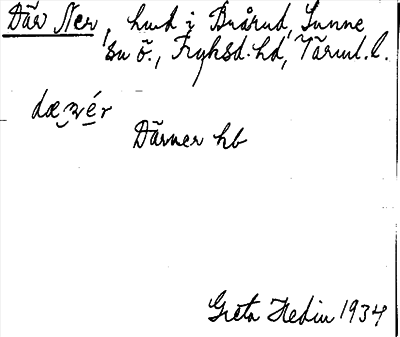 Där Ner, hmd i Brårud, Sunne
sn ö., Fryksd. hd, Värml. l.
Därner hb
Greta Hedin 1934